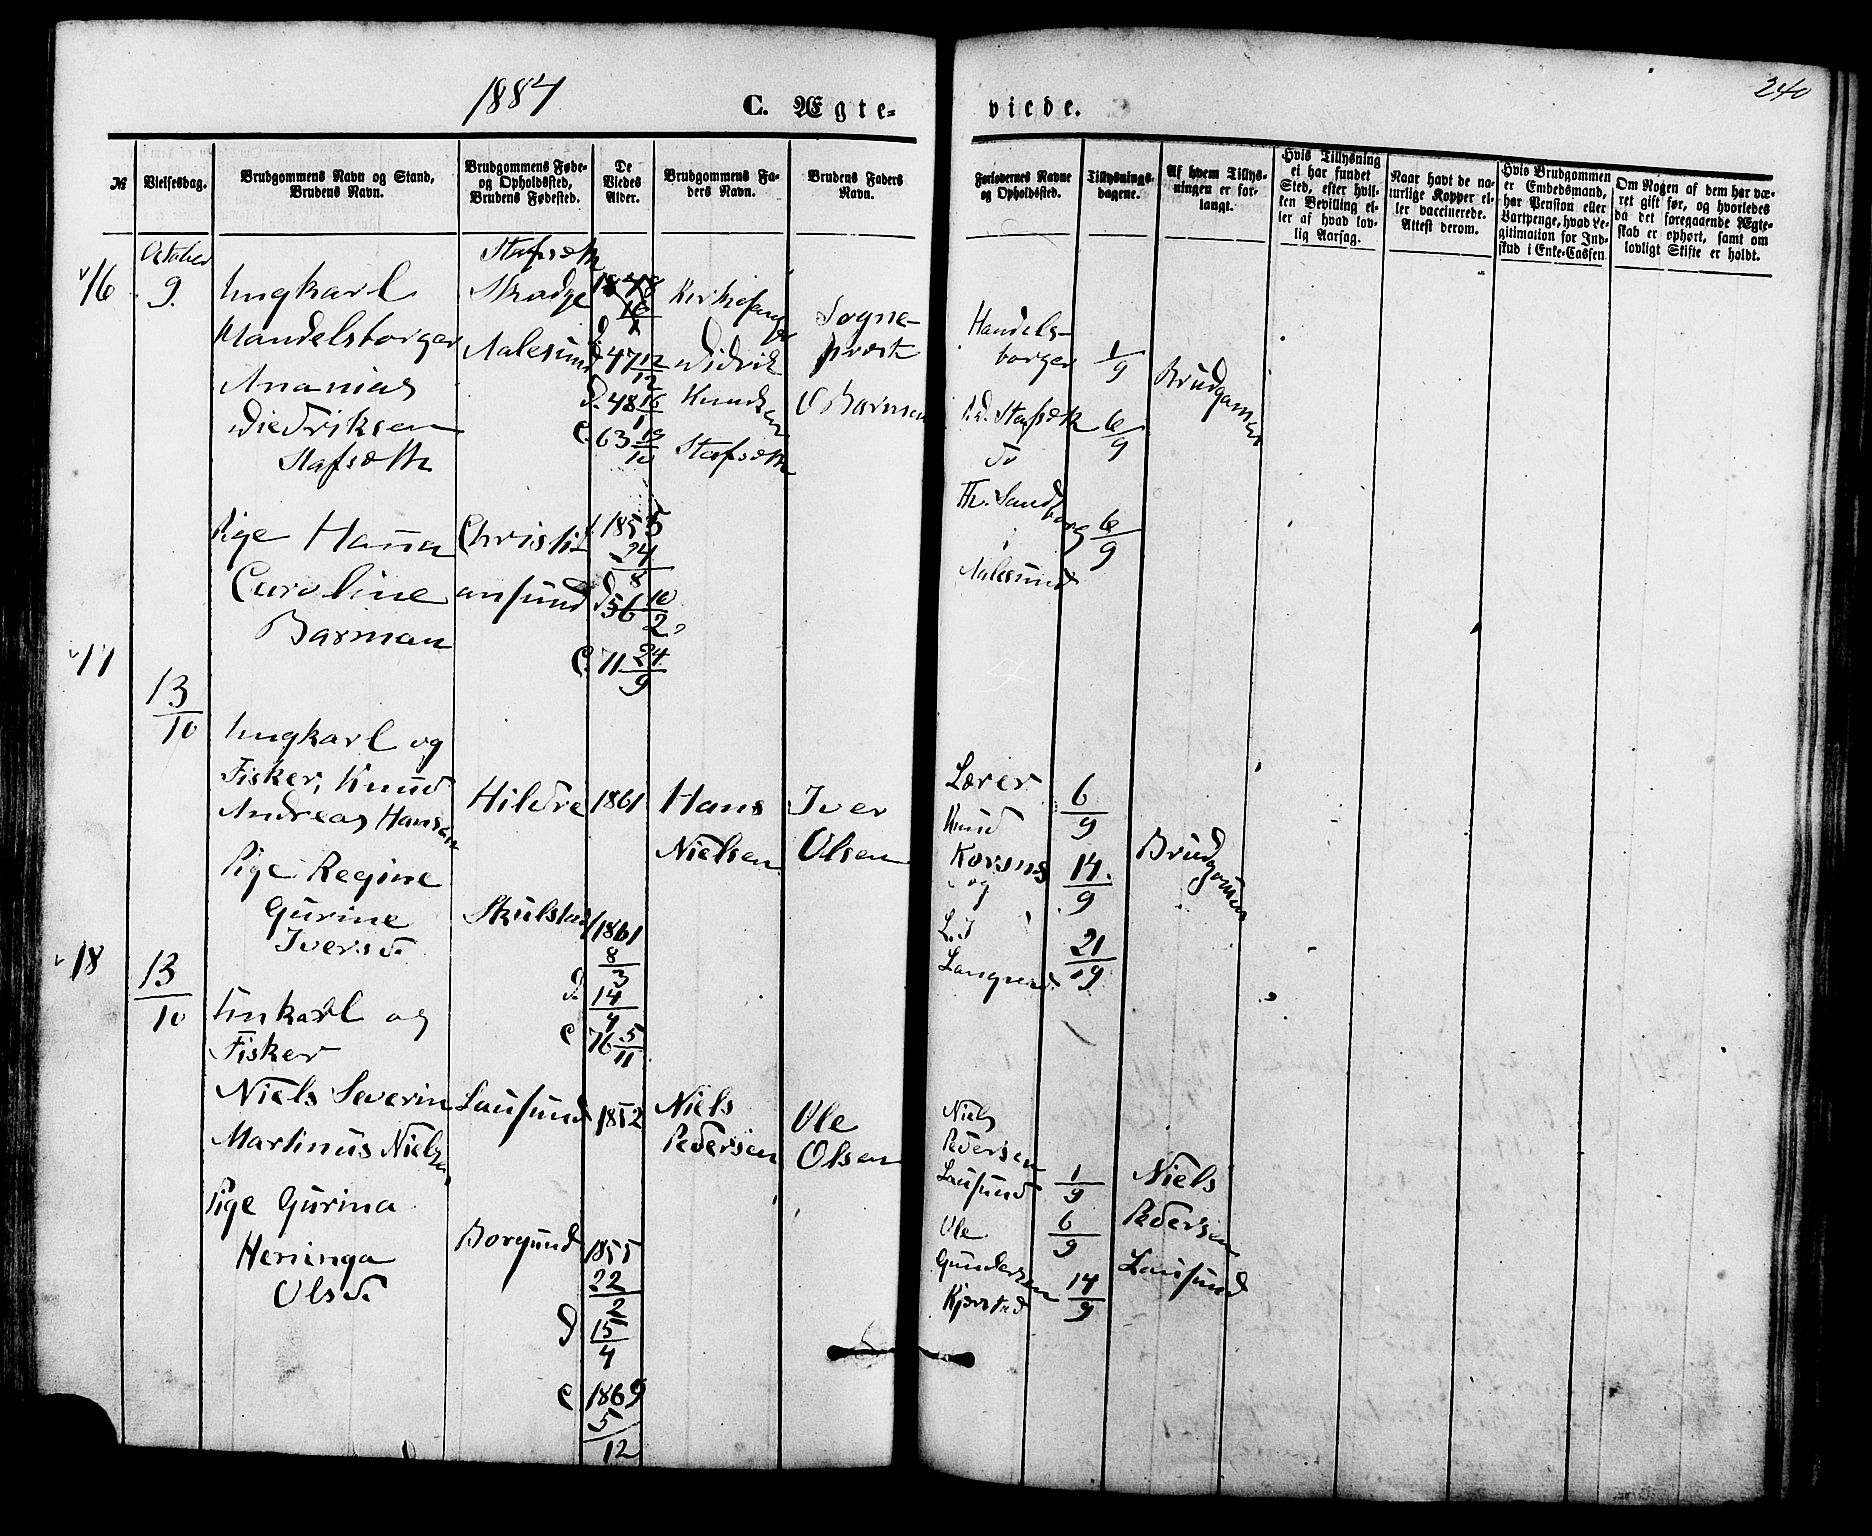 1884
C. Ægte-
viede.
240
№
Vielsesdag.
Brudgommens Navn og Stand,
Brudens Navn.
Brudgommens Føde-
og Opholdssted,
Brudens Fødested.
De
Viedes
Alder.
Brudgommens Fa-
ders Navn.
Brudens Faders
Navn.
Forlovernes Navne
og Opholdssted.
Tillysnings-
dagene.
Af hvem Tillys-
ningen er for-
langt.
Hvis Tillysning
ei har fundet
Sted, efter hvil-
ken Bevilling el-
ler af hvad lov-
lig Aarsag.
Naar havt de na-
turlige Kopper el-
ler vaccinerede.
Attest derom.
Hvis Brudgommen
er Embedsmand,
har Pension eller
Vartpenge, hvad Le-
gitimation for Ind-
skud i Enke-Cassen.
Om Nogen af dem har væ-
ret gift før, og hvorledes
da det foregaaende Ægte-
skab er ophørt, samt om
lovligt Skifte er holdt.
16
October
9.
Ungkarl
Handelsborger
Ananias
Diedriksen
Stafseth
Stafseth
Skodje
Aalesund
1848
d. 47 12/12
d. 48 16/1
C. 63 19/10
Kirkesanger
Didrik
Knudsen
Stafseth
Sogne-
præst
O Barman
Handels-
borger
R.D. Stafseth
do
Th. Sandborg
i
Aalesund
1/9
6/9
6/9
Brudgomen
Pige Hanna
Caroline
Barman
Christi
ansund
f. 1855
24/8
d. 56 10/2
C. 71 24/9
17
13/10
Ungkarl og
Fisker, Knud
Andreas Hansen
Hildre
1861
Hans
Nielsen
Iver
Olsen
Lærer
Knud
Korsnes
og
L. J
Langnes
6/9
14/9
21/9
Brudgomen
Pige Regine
Gurine
Iversd.
Skulstad
1861
8/3
d. 14/4
C 76 5/11
18
13/10
Unkarl og
Fisker
Niels Severin
Martinus Nielsen
Lausund
1852
Niels
Pedersen
Ole
Olsen
Niels
Pedersen
Lausund
Ole
Gundersen
Kjerstad
1/9
6/9
14/9
Niels
Pedersen
Lausund
Pige Gurina
Heninga
Olsd.
Borgund
1855
22/2
d 15/4
C 1869
5/12